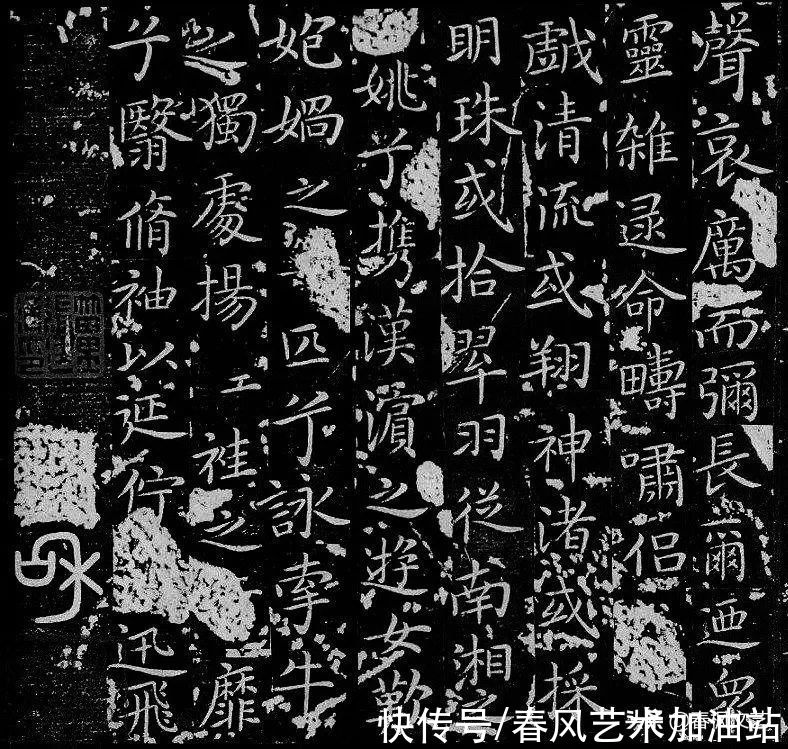 聲哀厲而彌長爾迺衆
靈雜遝命疇嘯侶
戲清流或翔神渚或採
明珠或拾翠羽從南湘之
姚兮携漢濱之遊女歎
匏媧之匹兮詠牽牛
之獨處揚袿之靡
兮翳脩袖以延佇迅飛
快传号/春风艺术加油站